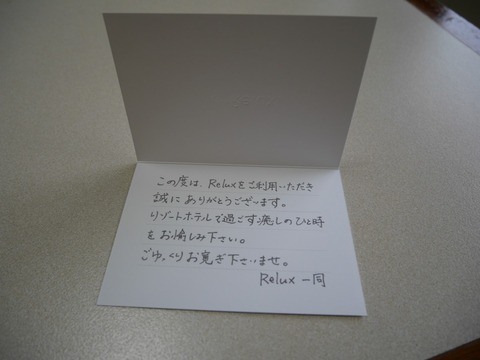 この度は、Reluxをご利用いただき
誠にありがとうございます。
リゾートホテルで過ごす癒しのひと時
をお愉しみ下さい。
ごゆっくりお寛ぎ下さいませ。
Relux 一同